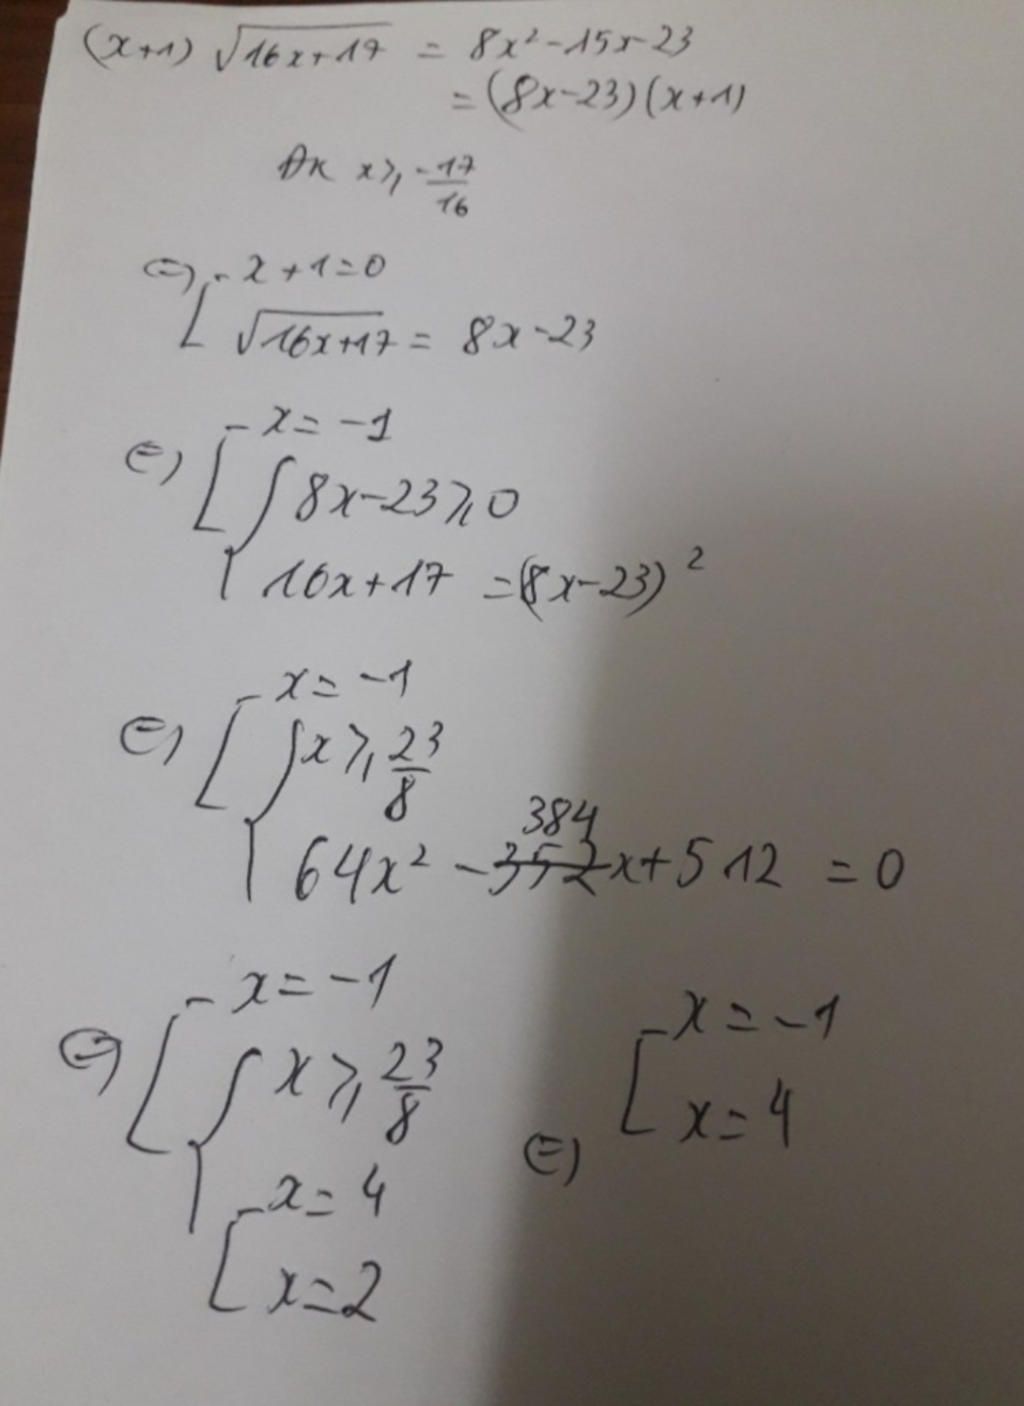 (x+1) √(16x+17) = 8x² - 15x - 23
= (8x-23)(x+1)
ĐK x ≥ -17/16
⇔ [ x+1=0
√(16x+17) = 8x-23
⇔ [ x = -1
{ 8x-23 ≥ 0
16x+17 = (8x-23)²
⇔ [ x = -1
{ x ≥ 23/8
384
64x² - 352x + 512 = 0
⇔ [ x = -1
{ x ≥ 23/8
[ x = 4
x = 2
⇔ [ x = -1
x = 4